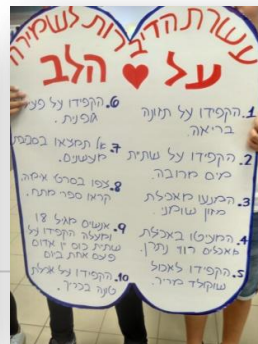 עשרת הדיברות לשמירה
על הלב
1. הקפידו על תזונה
בריאה.
2. הקפידו על שתית
מים מרובה.
3. המנעו מאכילת
מזון שומני.
4. המעיטו באכילת
מאכלים רווי נתרן.
5. הקפידו לאכול
שוקולד מריר.
6. הקפידו על פע
גופנית.
7. אל תמצאו בסביבת
מעשנים.
8. צפו בסרטי אימה,
קראו ספר מתח.
9. אנשים מגיל 18
ומעלה הקפידו על
שתית כוס יין אדום
פעם אחת ביום
10. הקפידו על אכילת
טונה בכריך.